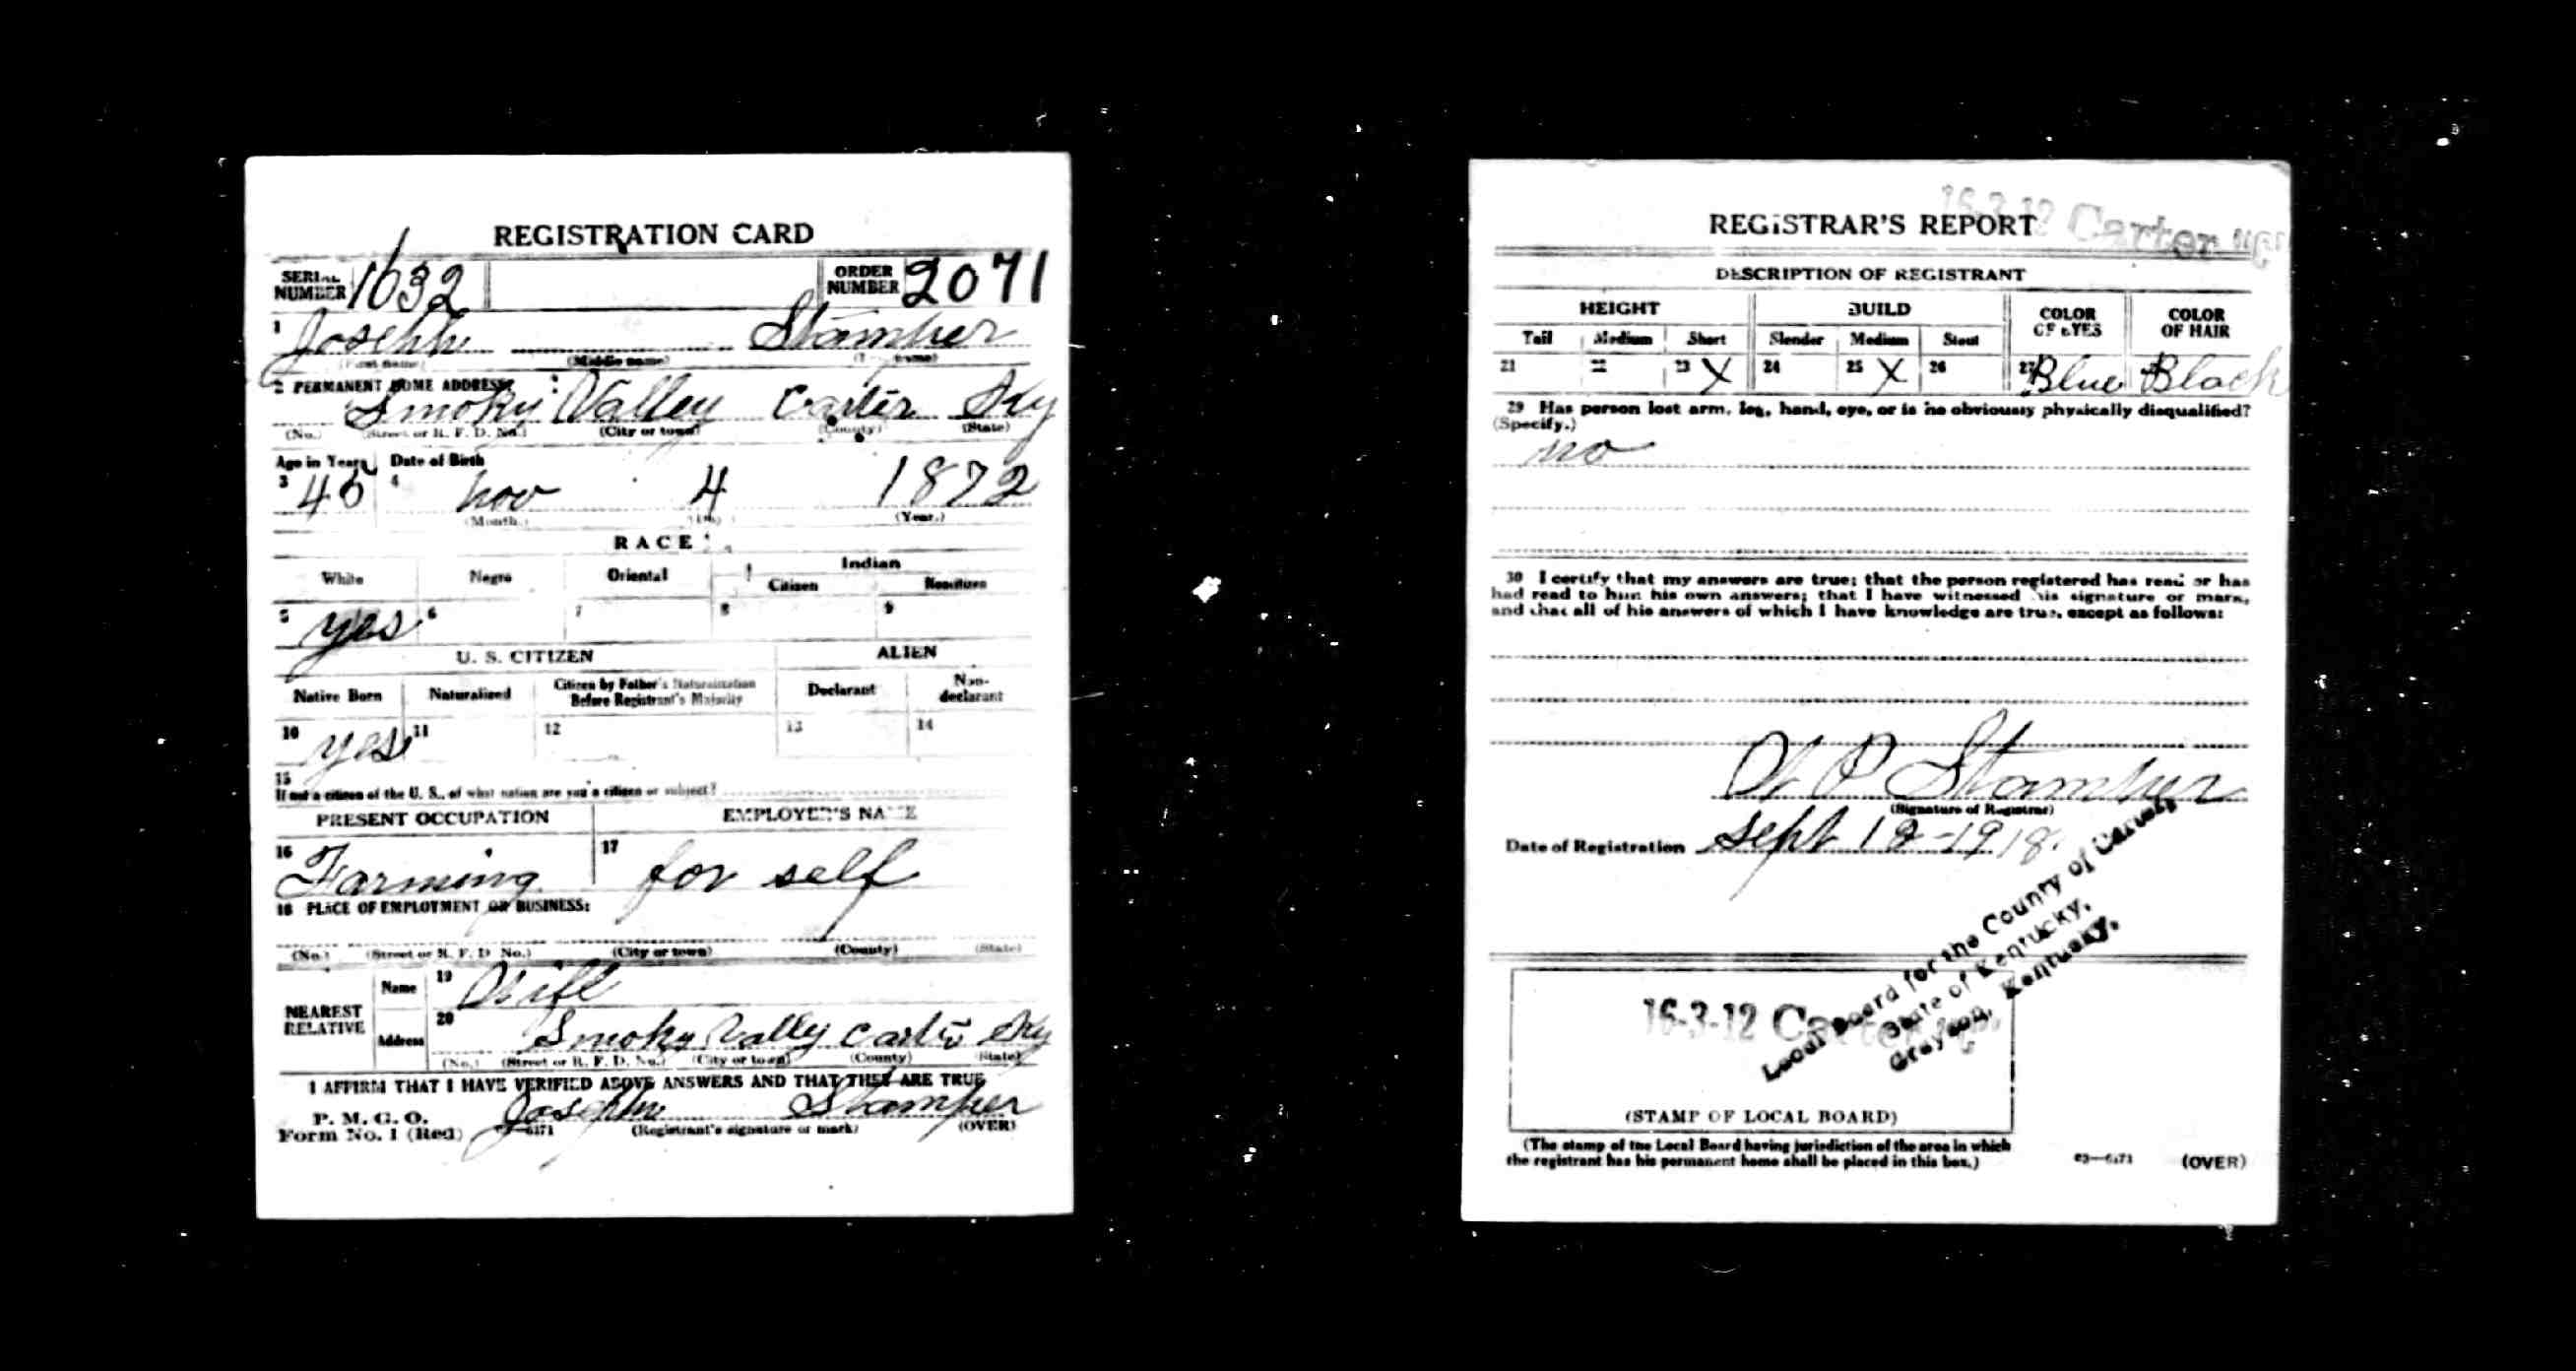 REGISTRATION CARD
SERIAL NUMBER 1632 ORDER NUMBER 2071
1 Joseph Stamper
(First name) (Middle name)
2 PERMANENT HOME ADDRESS:
Smoky Valley Carter Ky
(No.) (Street or R. F. D. No.) (City or town) (County) (State)
Age in Years Date of Birth
3 45 4 Nov 4 1872
(Month.) (Year.)
RACE
White Negro Oriental Indian
Citizen Noncitizen
5 yes 6 7 8 9
U. S. CITIZEN ALIEN
Native Born Naturalized Citizen by Father's Naturalization Before Registrant's Majority Declarant Non-declarant
10 yes 11 12 13 14
15
If not a citizen of the U. S., of what nation are you a citizen or subject?
PRESENT OCCUPATION EMPLOYER'S NAME
16 Farming 17 for self
18 PLACE OF EMPLOYMENT OR BUSINESS:
(No.) (Street or R. F. D. No.) (City or town) (County) (State)
NEAREST RELATIVE Name 19 Wife
Address 20 Smoky Vally Carter Ky
(No.) (Street or R. F. D. No.) (City or town) (County) (State)
I AFFIRM THAT I HAVE VERIFIED ABOVE ANSWERS AND THAT THEY ARE TRUE
P. M. G. O.
Form No. 1 (Red) Joseph Stamper
(Registrant's signature or mark) (OVER)
16-3-12 Carter
REGISTRAR'S REPORT
DESCRIPTION OF REGISTRANT
HEIGHT BUILD COLOR OF EYES COLOR OF HAIR
Tall Medium Short Slender Medium Stout
21 22 23 X 24 25 X 26 27 Blue Black
29 Has person lost arm, leg, hand, eye, or is he obviously physically disqualified?
(Specify.)
no
30 I certify that my answers are true; that the person registered has read or has
had read to him his own answers; that I have witnessed his signature or mark,
and that all of his answers of which I have knowledge are true, except as follows:
W P Stamper
(Signature of Registrar)
Date of Registration Sept 12-1918
Local Board for the County of Carter,
State of Kentucky,
Grayson, Kentucky.
16-3-12 Carter
(STAMP OF LOCAL BOARD)
(The stamp of the Local Board having jurisdiction of the area in which
the registrant has his permanent home shall be placed in this box.)
03—6171 (OVER)